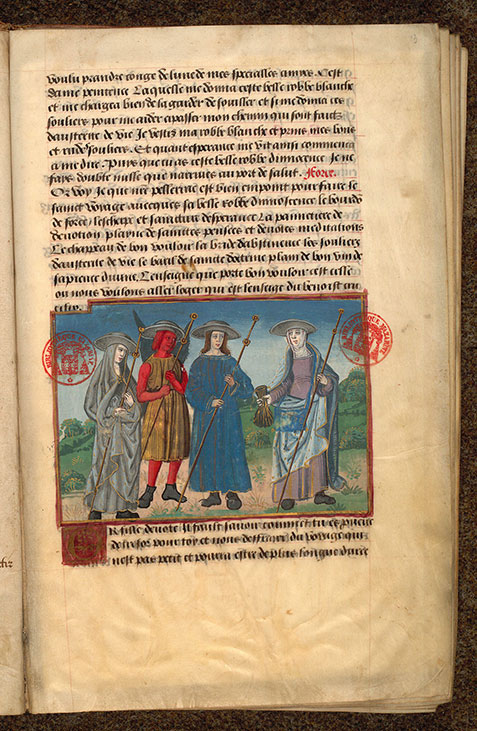 voulu prandre conge de lune de mes specialles amyes Cest
dame penitence Laquelle me donna ceste belle robbe blanche
et me chargea bien de la garder de souiller et si me donna ces
souliers pour me aider a passer mon chemin qui sont faitz
dausterite de vie Je vestis ma robbe blanche et prins mes bons
et rudes souliers. Et quant esperance me vit ainsi commenca
a me dire. Puis que tu as ceste belle robbe dinnocence Je ne
faiz doubte nulle que au port de salut. Force.
Or voy Je que nre pellerine est bien enpoint pour faire le
sainct voyage avecques sa belle robbe dinnocence le bourdon
de force lescharpe et saincture desperance La pannetiere de
devotion plaine de sainctes pensees et devotes meditations
Le chappeau de bon vouloir la bride dabstinence les souliers
dausterite de vie le baril de saincte doctrine plain de bon vin de
sapience divine. Lenseigne que porte bon vouloir est celle
ou nous voulons aller loger qui est lenseigne du benoist cru
cefix.
fille devote Il fault scavoir comment tu
de tresor pour toy et nous deffraier du voyage qui
nest pas petit et pourra estre de plus longue duree